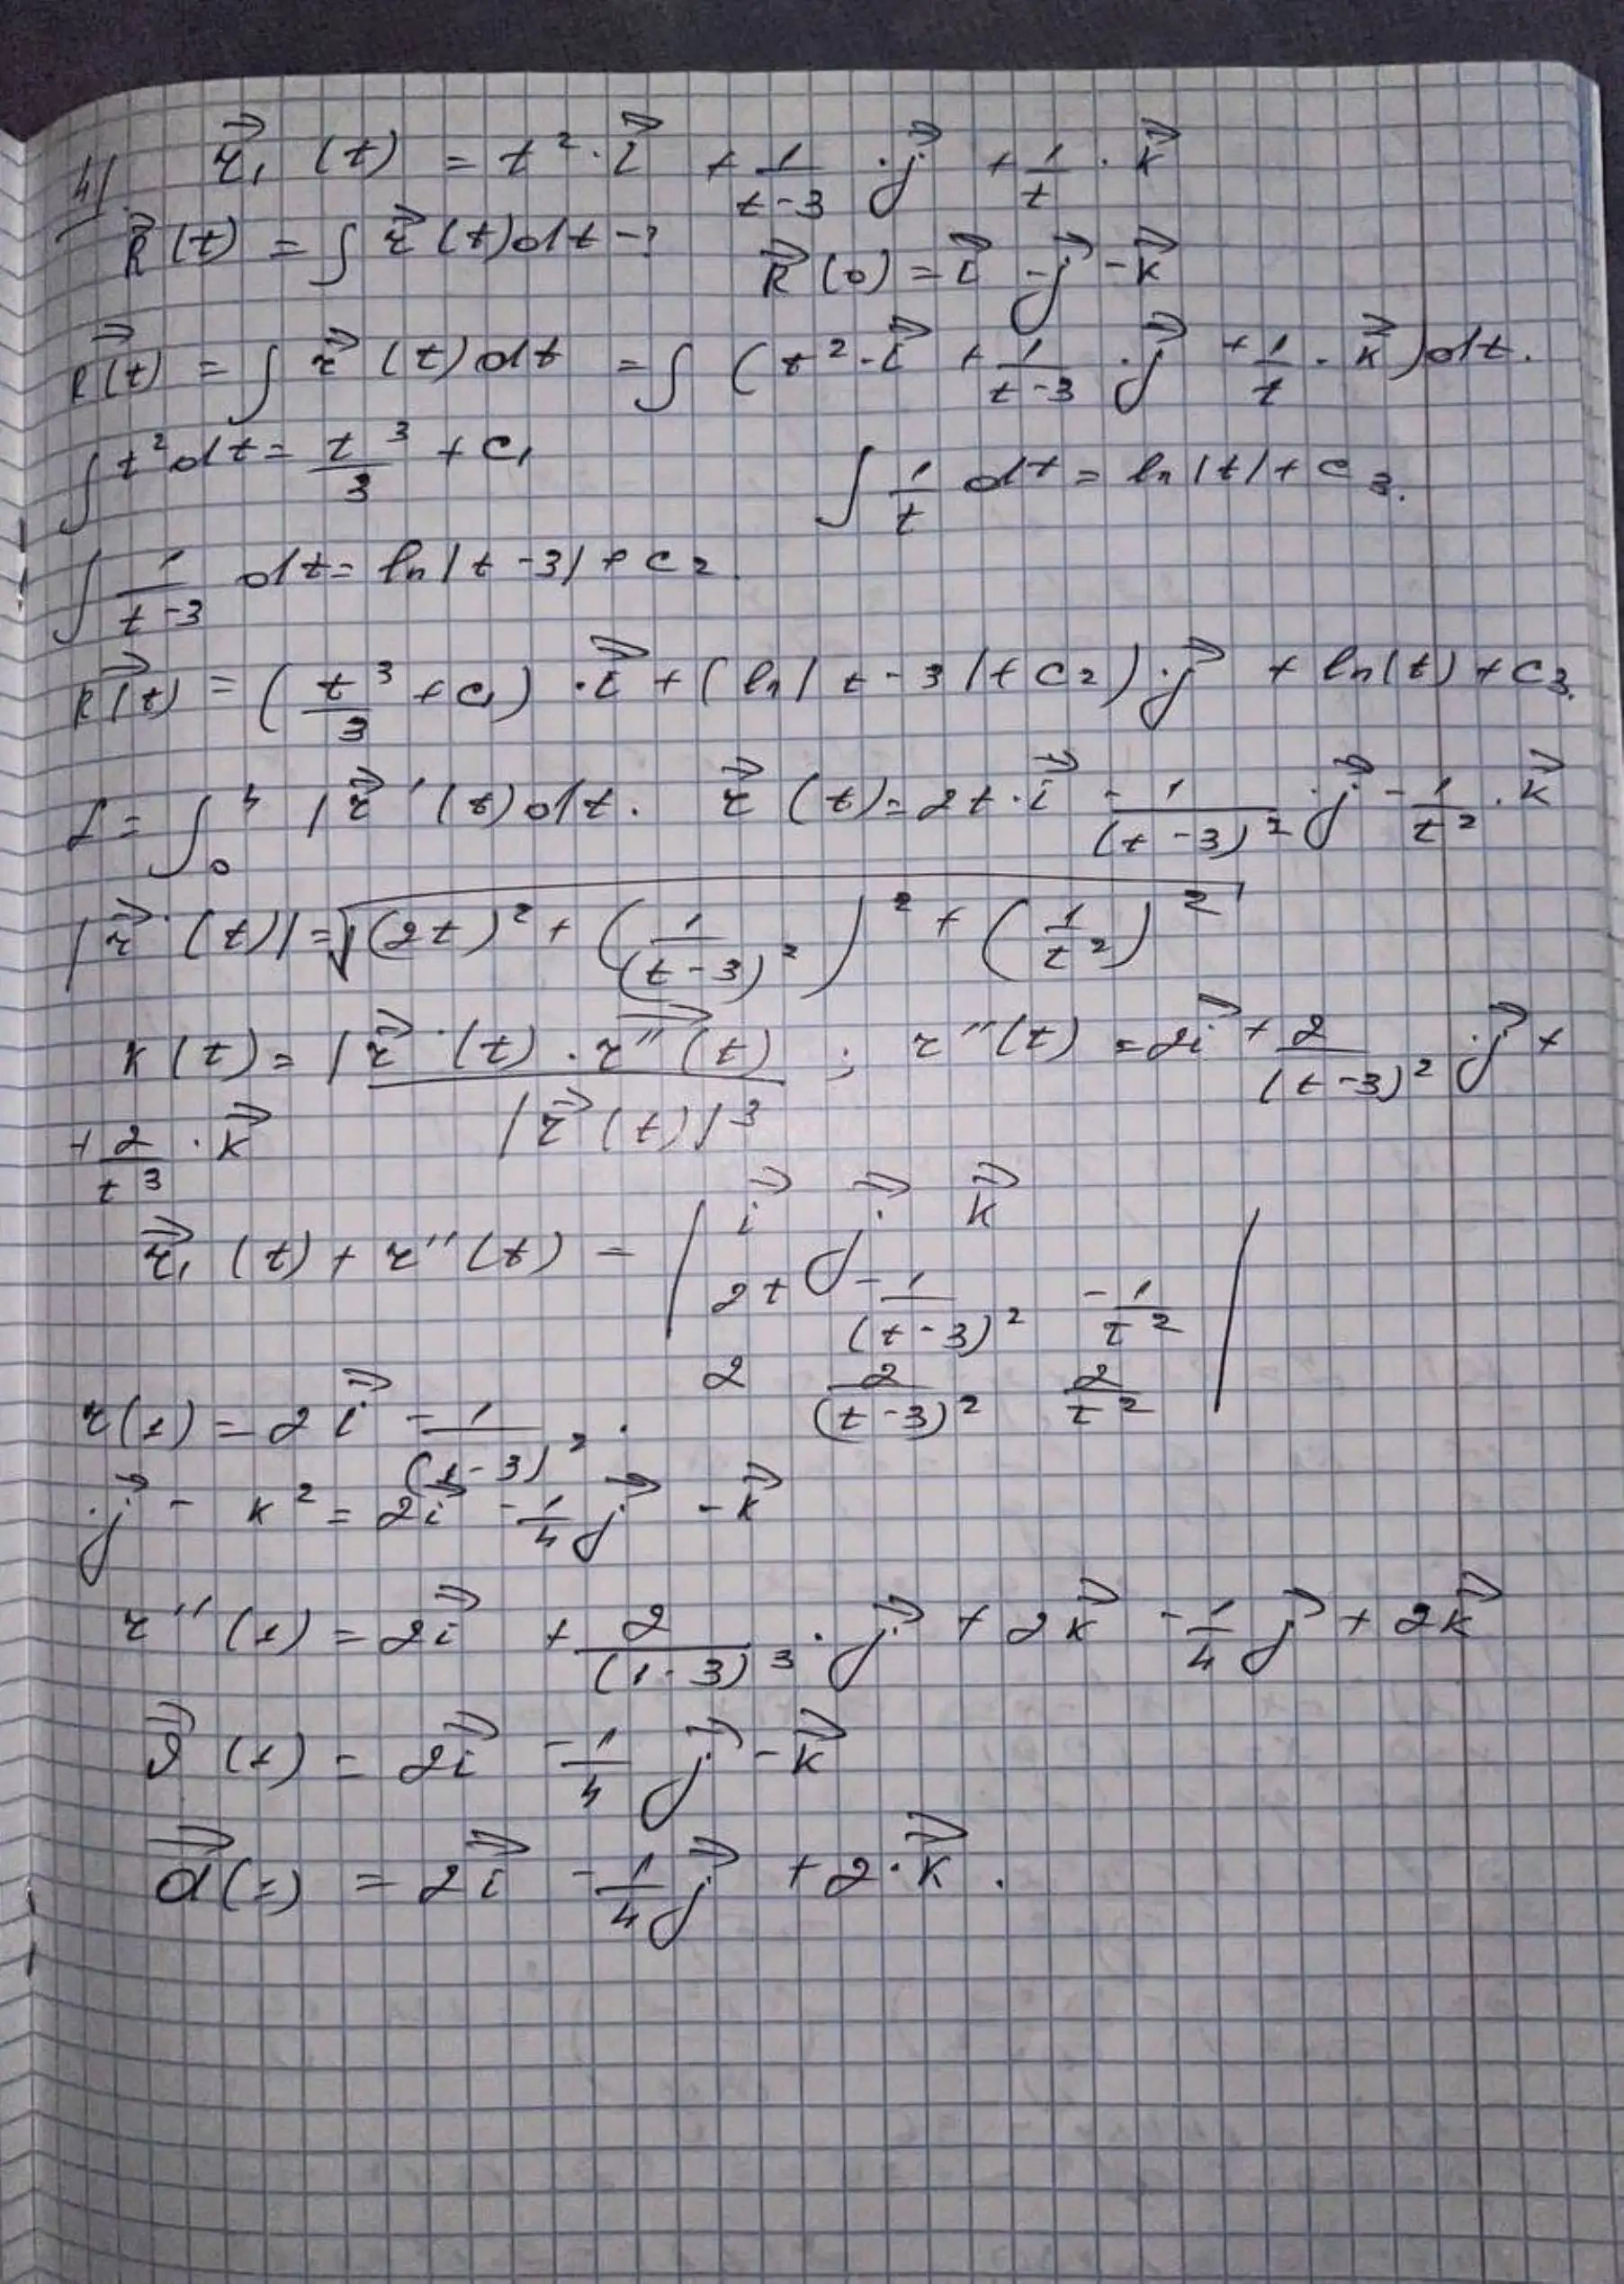 4) r⃗₁ (t) = t² · i⃗ + 1/(t-3) · j⃗ + 1/t · k⃗
R⃗(t) = ∫ r⃗ (t)dt - ? R⃗(0) = i⃗ - j⃗ - k⃗
R⃗(t) = ∫ r⃗ (t)dt = ∫ (t² · i⃗ + 1/(t-3) · j⃗ + 1/t · k⃗)dt.
∫ t²dt = t³/3 + C₁ ∫ 1/t dt = ln|t| + C₃.
∫ 1/(t-3) dt = ln|t-3| + C₂.
R⃗(t) = (t³/3 + C₁) · i⃗ + (ln|t-3| + C₂) · j⃗ + ln(t) + C₃.
L = ∫₀⁴ |r⃗ '(t)dt. r⃗ (t) = 2t · i⃗ - 1/(t-3)² · j⃗ - 1/t² · k⃗
|r⃗ '(t)| = √((2t)² + (1/(t-3)²)² + (1/t²)²)
k(t) = |r⃗ '(t) · r⃗''(t) / |r⃗ (t)|³ ; r''(t) = 2i⃗ + 2/(t-3)² j⃗ +
+ 2/t³ · k⃗
r⃗₁ (t) + r''(t) = | i⃗ j⃗ k⃗
2t -1/(t-3)² -1/t²
2 2/(t-3)² 2/t² |
r(1) = 2i⃗ - 1/(1-3)² ·
· j⃗ - k² = 2i⃗ - 1/4 j⃗ - k⃗
r''(1) = 2i⃗ + 2/(1-3)³ · j⃗ + 2k⃗ - 1/4 j⃗ + 2k⃗
ϑ⃗ (1) = 2i⃗ - 1/4 j⃗ - k⃗
a⃗(=) = 2i⃗ - 1/4 j⃗ + 2 · k⃗.